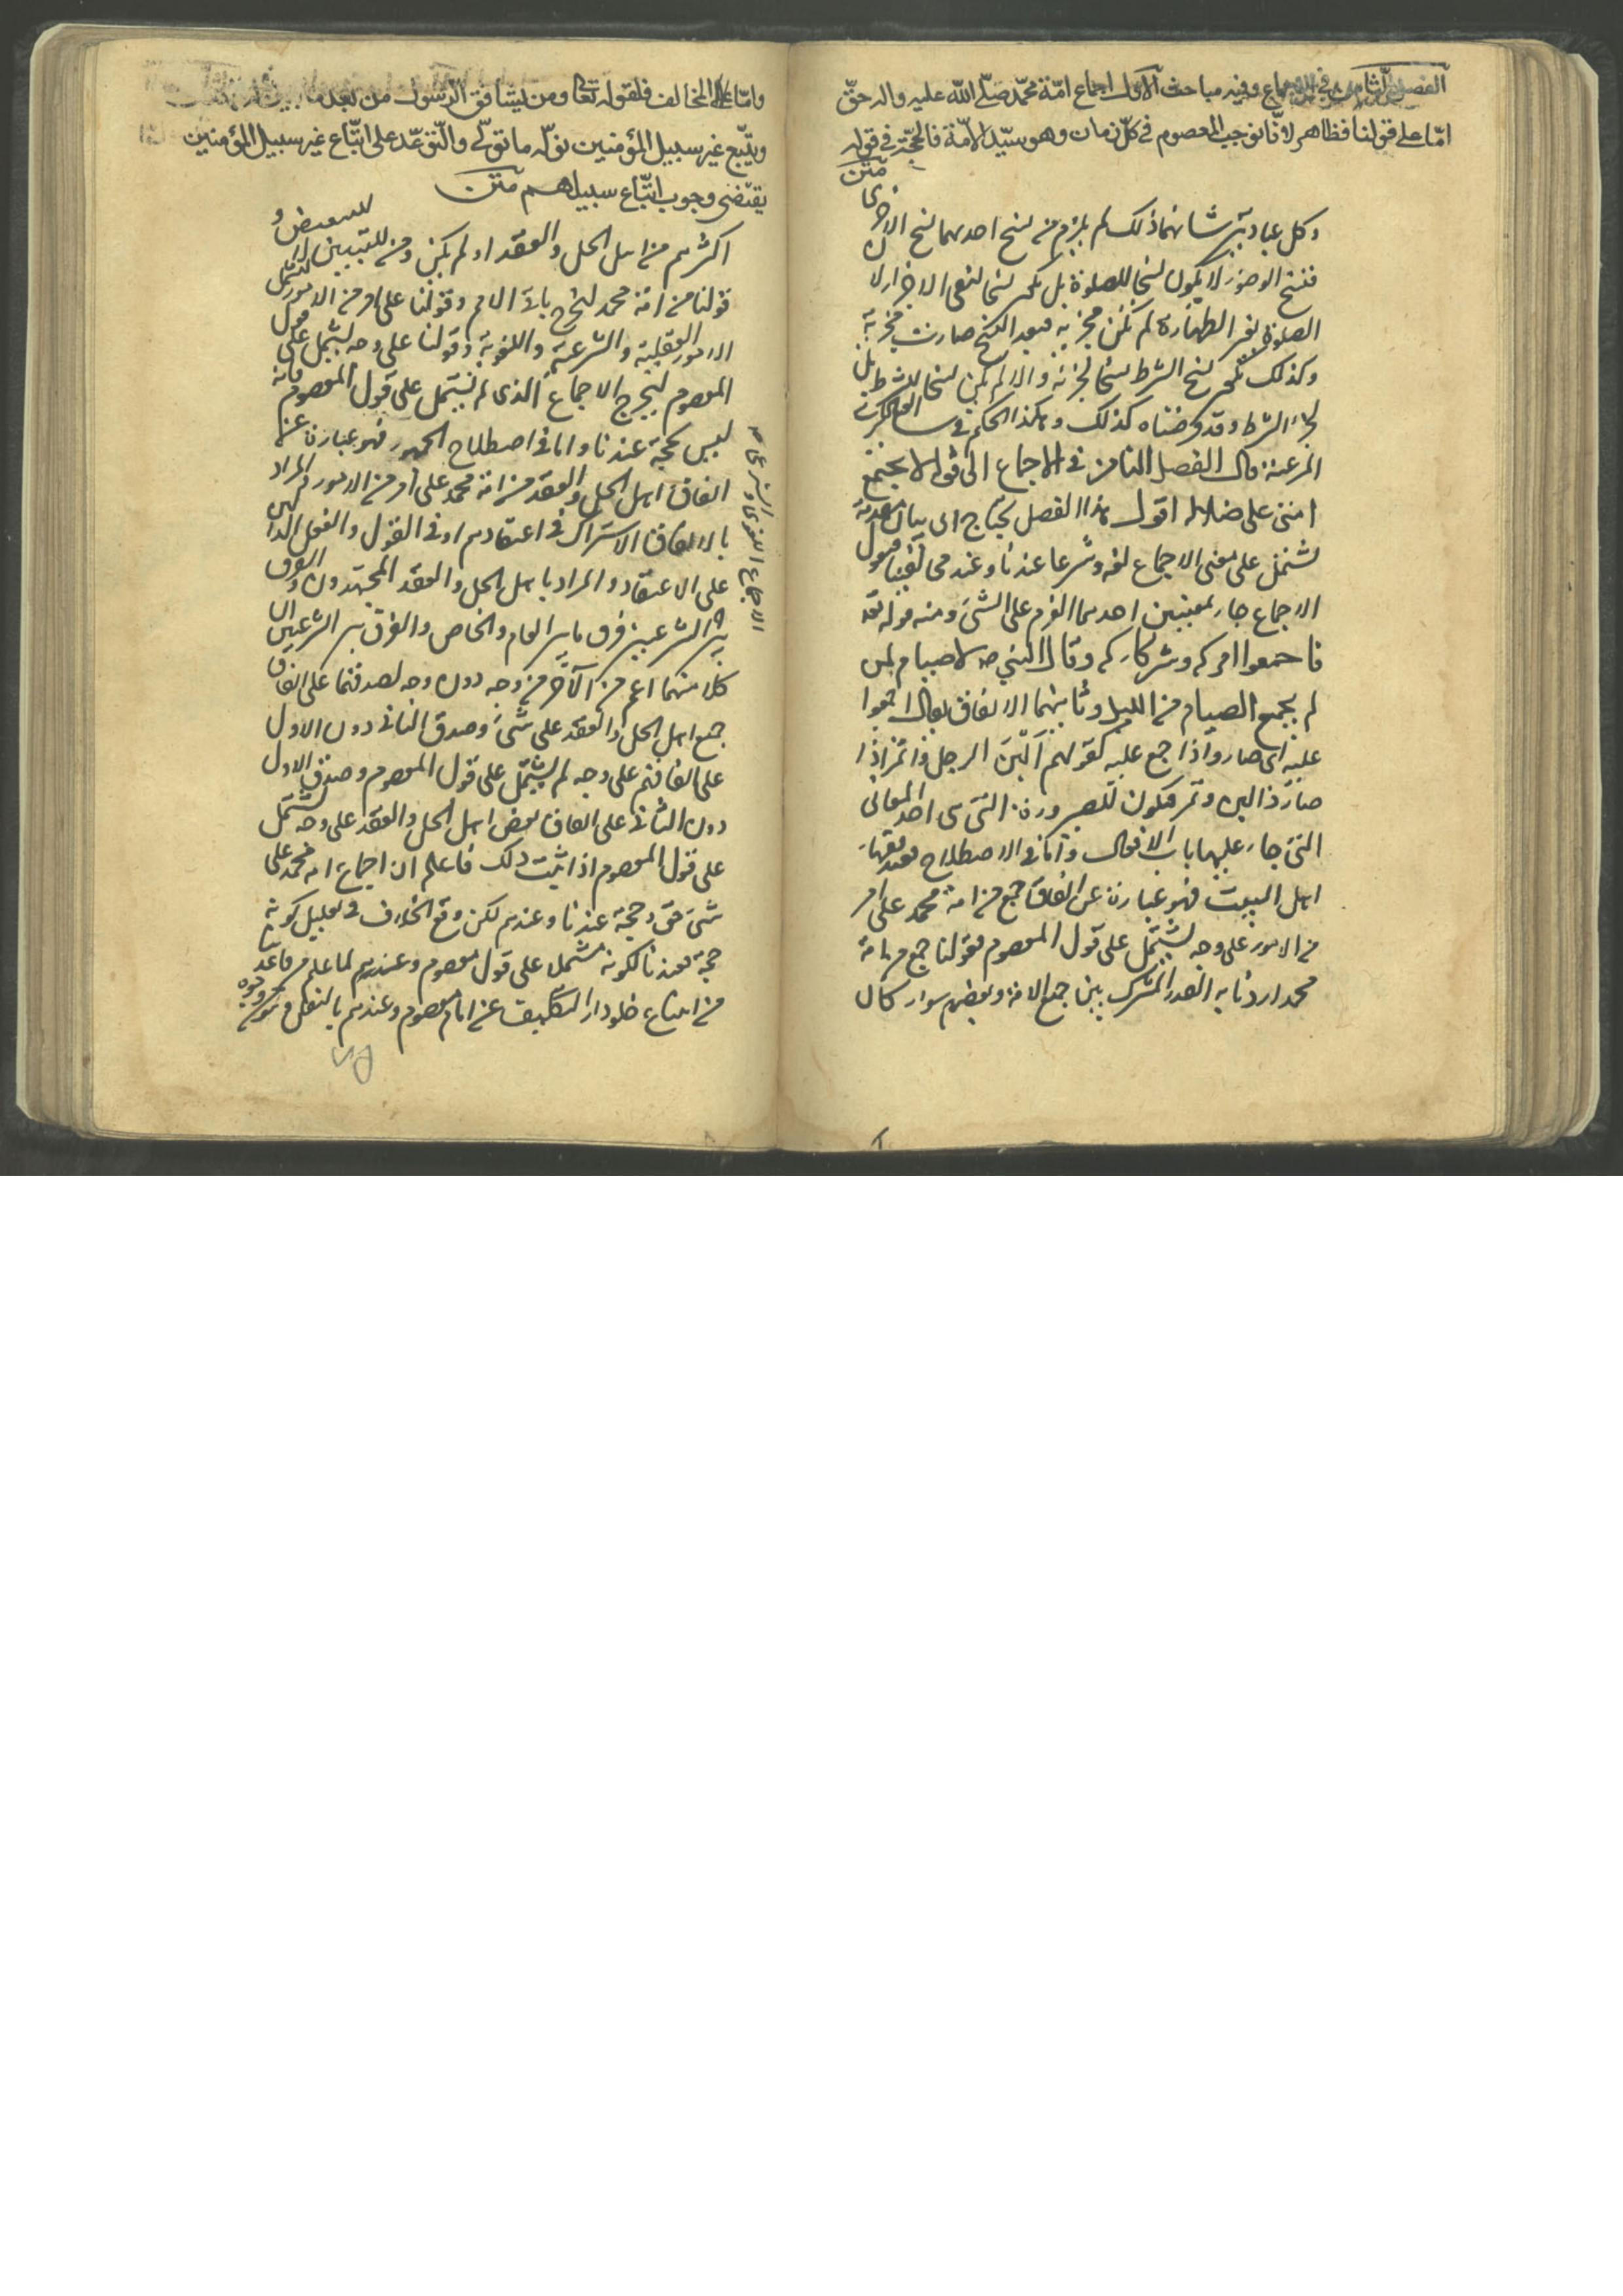 الفصل الثامن في الاجماع وفيه مباحث الاول اجماع امّة محمّد صلّى الله عليه واله حقّ
امّا على قولنا فظاهر لانّا نوجب المعصوم في كلّ زمان وهو سيّد الامّة فالحجّة في قوله
متن
وكل عبادتين شانهما ذلك لم يلزم من نسخ احديهما نسخ الاخرى
فنسخ الوضوء لا يكون نسخا للصلوة بل يكون نسخا لنفى الاجزاء لان
الصلوة بغير الطهارة لم تكن مجزية فبعد النسخ صارت مجزية
وكذلك نسخ الشرط نسخا لجزئه والا لم يكن نسخا للشرط بل
لجزء الشرط وقد فرضناه كذلك وهكذا الحكم في سائر العبادات
الشرعية قال الفصل الثامن في الاجماع الى قوله لا يجتمع
امتى على ضلالة اقول هذا الفصل يحتاج الى بيان مقدمة
تشتمل على معنى الاجماع لغة وشرعا عندنا وعند مخالفينا فنقول
الاجماع جاء لمعنيين احدهما العزم على الشئ ومنه قوله تعه
فاجمعوا امركم وشركاءكم وقال النبي ص لا صيام لمن
لم يجمع الصيام من الليل وثانيهما الاتفاق يقال اجمعوا
عليه اى صاروا ذا جمع عليه كقولهم اَلْبَنَ الرجل واتمر اذا
صار ذا لبن وتمر فيكون للصيرورة التى هى احد المعانى
التى جاء عليها باب الافعال وامّا في الاصطلاح فعند فقهاء
اهل البيت فهو عبارة عن اتفاق جمع من امة محمد على امر
من الامور على وجه يشتمل على قول المعصوم فقولنا جمع من امة
محمد اردنا به القدر المشترك بين جميع الامة وبعضهم سواء كان
وامّا على المخالف فلقوله تعالى ومن يشاقق الرّسول من بعد ما
ويتّبع غير سبيل المؤمنين نولّه ما تولّى والتّوعّد على اتّباع غير سبيل المؤمنين
يقتضى وجوب اتّباع سبيلهم متن
اكثرهم من اهل الحل والعقد او لم يكن ومن للتبيين لا للتبعيض و
قولنا من امة محمد ليخرج باقى الامم وقولنا على امر من الامور ليشمل
الامور العقلية والشرعية واللغوية وقولنا على وجه يشتمل على قول
المعصوم ليخرج الاجماع الذى لم يشتمل على قول المعصوم فانه
ليس بحجة عندنا واما في اصطلاح الجمهور فهو عبارة عن
اتفاق اهل الحل والعقد من امة محمد على امر من الامور والمراد
بالاتفاق الاشتراك في اعتقادهم او في القول والفعل الدالين
على الاعتقاد والمراد باهل الحل والعقد المجتهدون والفرق
بين الشرعيين فرق ما بين العام والخاص والفرق بين الشرعيين ان
كلا منهما اعم من الآخر من وجه دون وجه لصدقهما على اتفاق
جميع اهل الحل والعقد على شئ وصدق الثانى دون الاول
على اتفاقهم على وجه لم يشتمل على قول المعصوم وصدق الاول
دون الثانى على اتفاق بعض اهل الحل والعقد على وجه يشتمل
على قول المعصوم اذا ثبت ذلك فاعلم ان اجماع امة محمد على
شئ حق وحجة عندنا وعندهم لكن وقع الخلاف في تعليل كونه
حجة فعندنا لكونه مشتملا على قول معصوم وعندهم لما علم من قاعدتنا
من امتناع خلو دار التكليف عن امام معصوم وعندهم بالنقل من وجوه
الاجماع اللغوى و